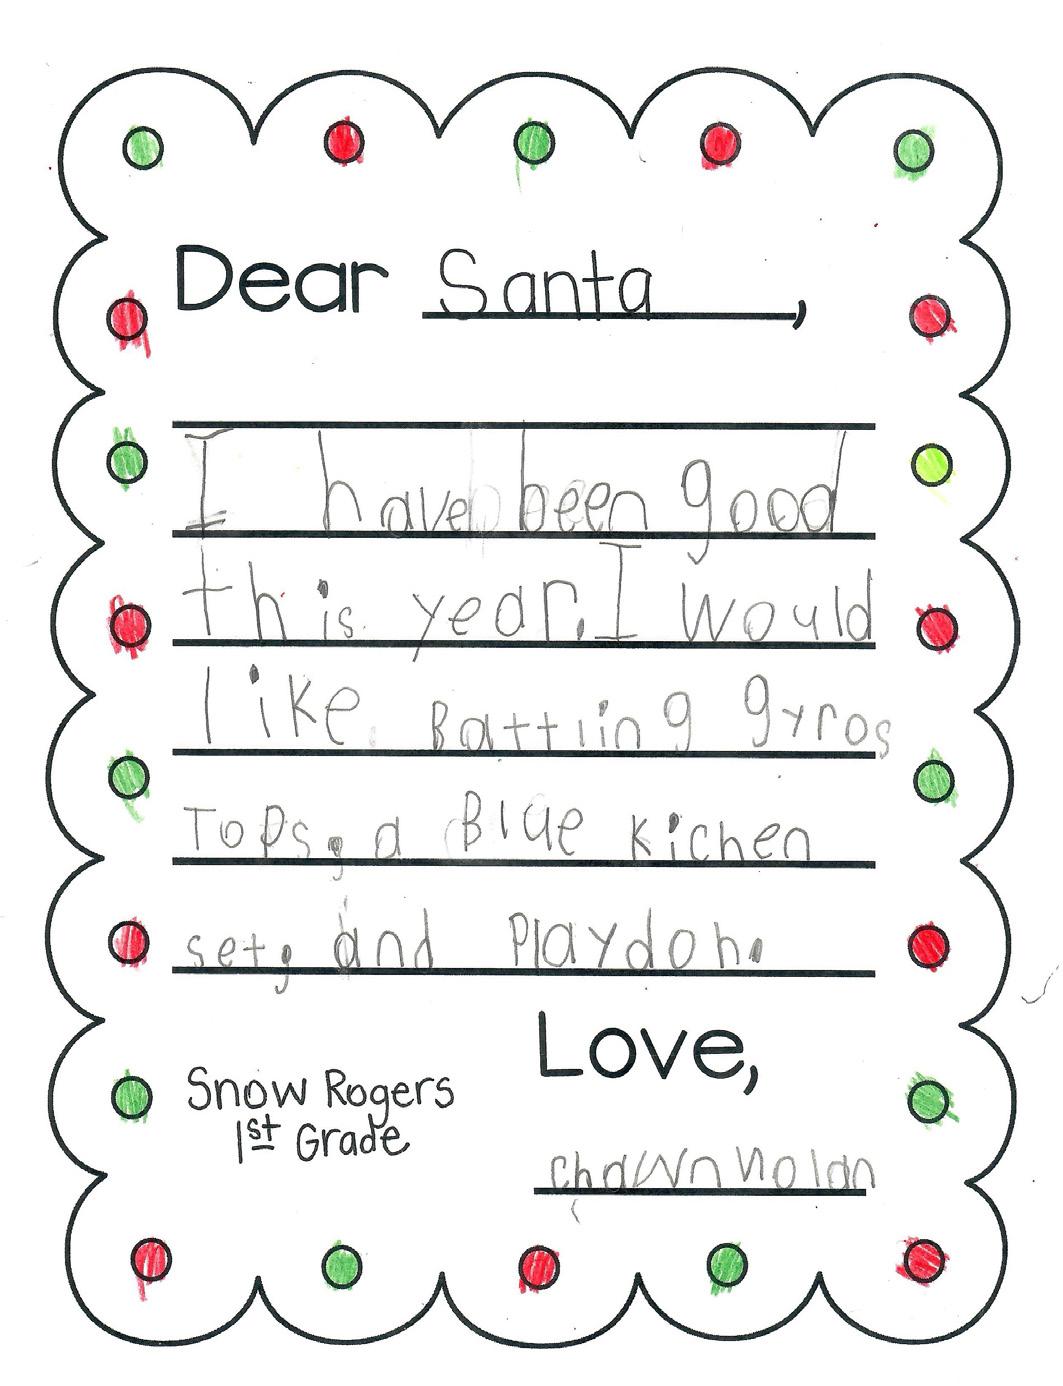 Dear Santa,
I have been good
this year. I would
like Battling gyros
Tops, a Blue Kichen
set, and Playdoh.
Love,
Snow Rogers
1st Grade
chawn nolan